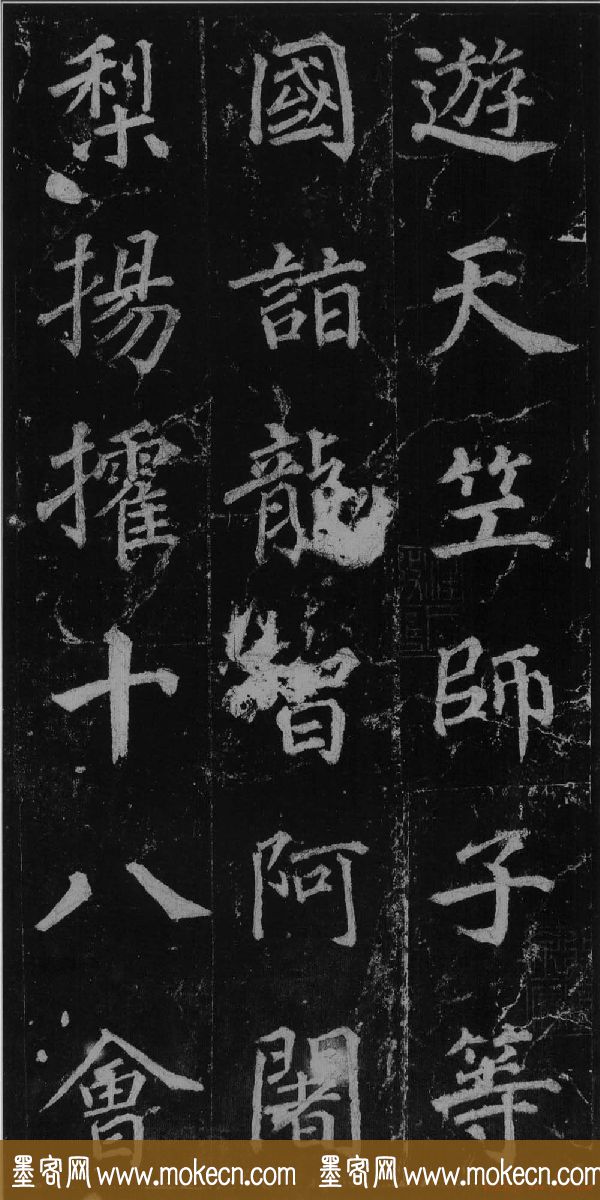 遊天竺師子等
國詣龍智阿闍
梨揚攉十八會
墨客网 www.mokecn.com 墨客网 www.mokecn.com